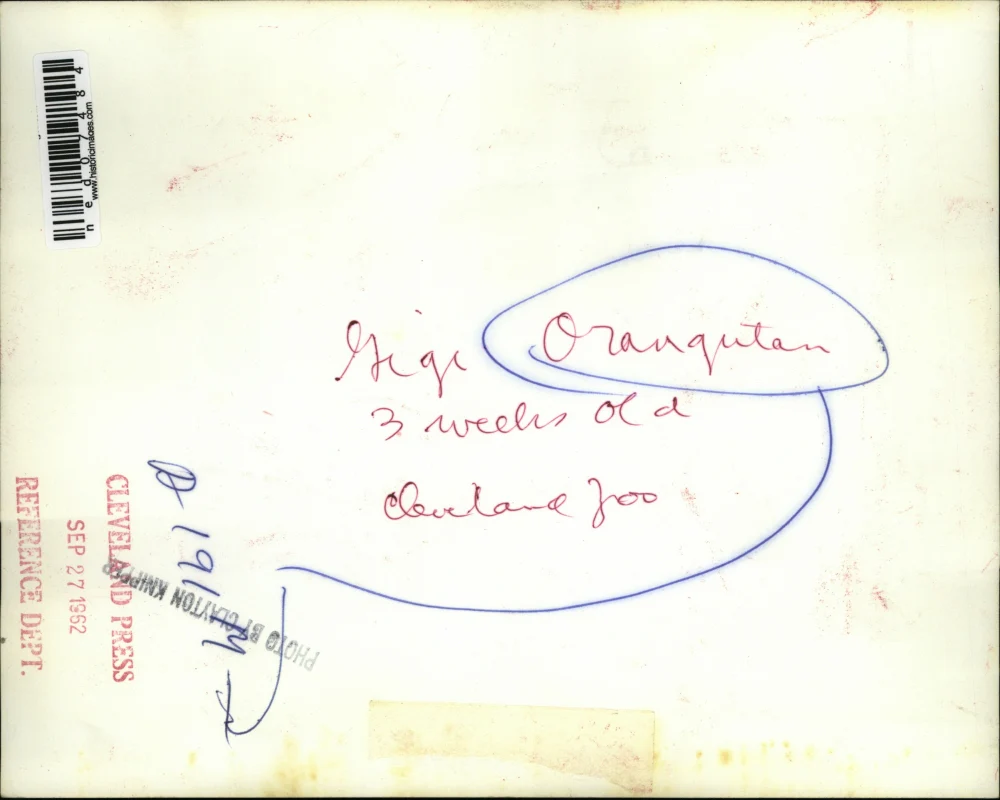 Gigi Orangutan
3 weeks old
Cleveland Zoo
CLEVELAND PRESS
SEP 27 1962
REFERENCE DEPT.
PHOTO BY CLAYTON KNIPPER
ned07484
www.historicimages.com